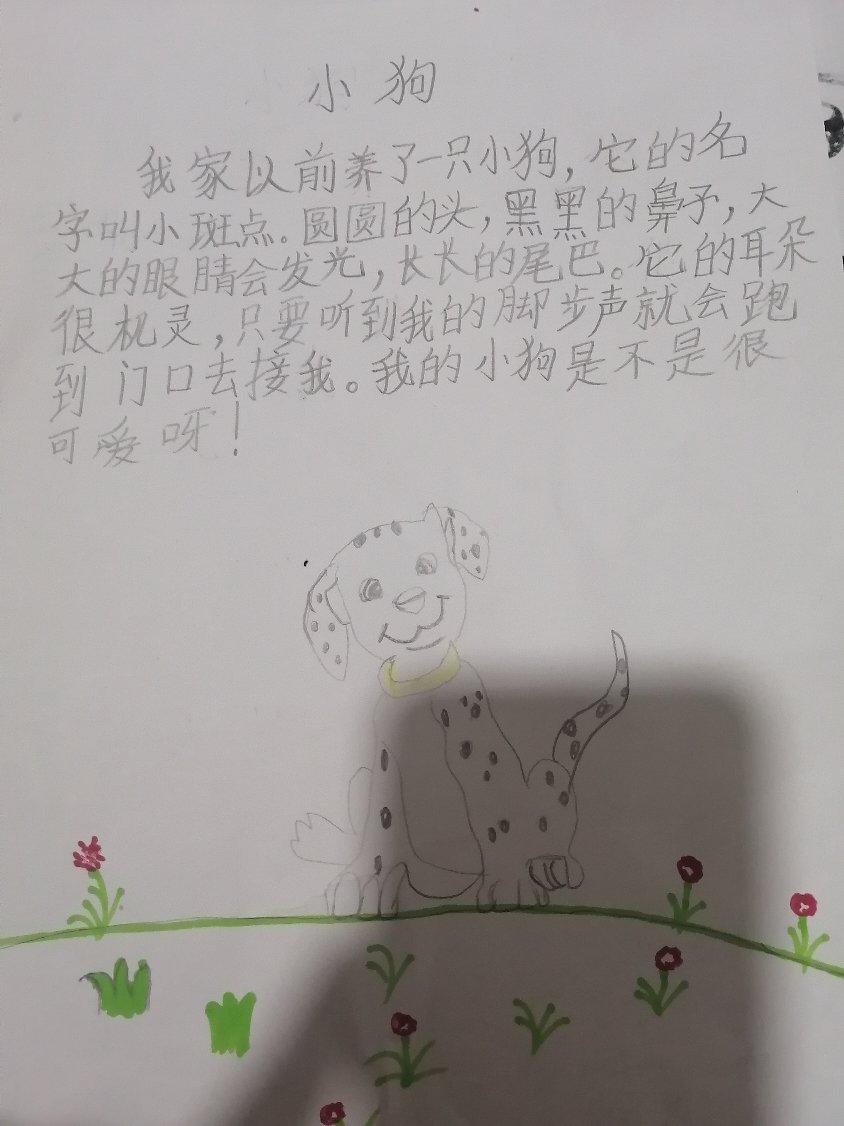 小狗
我家以前养了一只小狗,它的名
字叫小斑点.圆圆的头,黑黑的鼻子,大
大的眼睛会发光,长长的尾巴。它的耳朵
很机灵,只要听到我的脚步声就会跑
到门口去接我。我的小狗是不是很
可爱呀!